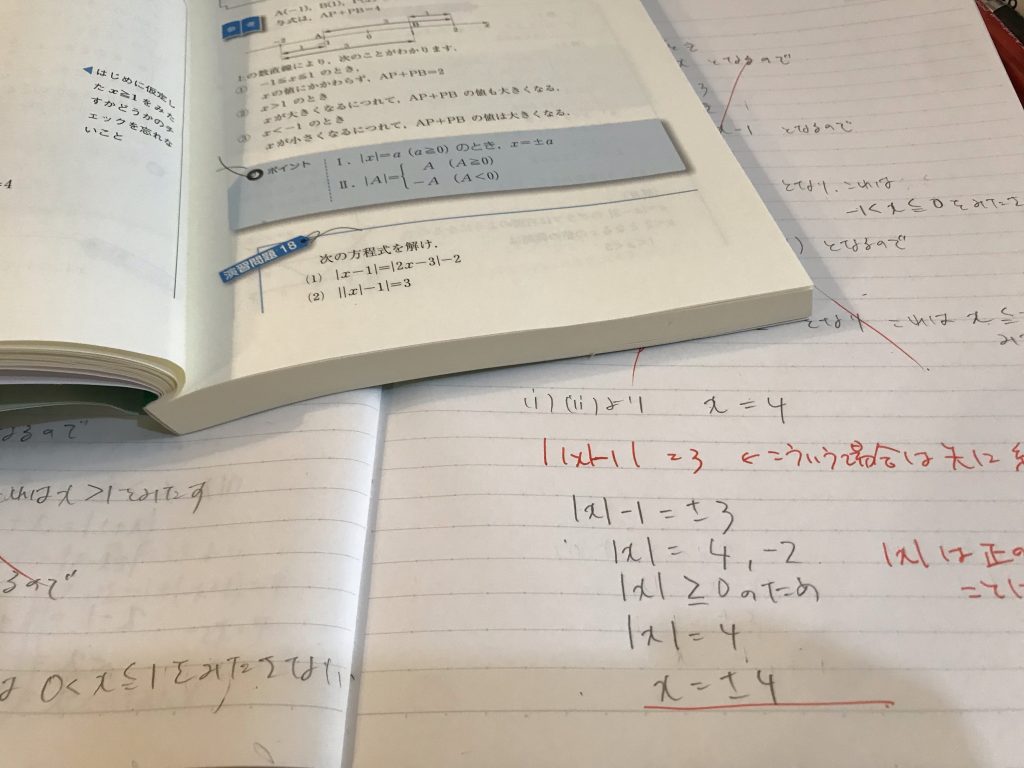 A(-1), B(1),
与式は, AP+PB=4
上の数直線により, 次のことがわかります.
① -1≦x≦1 のとき,
xの値にかかわらず, AP+PB=2
② x>1 のとき
xが大きくなるにつれて, AP+PB の値も大きくなる.
③ x<-1 のとき
xが小さくなるにつれて, AP+PB の値は大きくなる.
◀はじめに仮定し
た x≧1 をみた
すかどうかのチ
ェックを忘れな
いこと
=4
ポイント
Ⅰ. |x|=a (a≧0) のとき, x=±a
Ⅱ. |A|={ A (A≧0)
-A (A<0)
演習問題 18
次の方程式を解け.
(1) |x-1|=|2x-3|-2
(2) ||x|-1|=3
となるので
x-1 となるので
となり、これは
-1<x≦0をみたさ
) となるので
となり これは x≦
(i)(ii)より x=4
||x|-1|=3 ←こういう場合は先に
|x|-1=±3
|x|=4, -2
|x|≧0のため
|x|=4
x=±4
|x|は正の
なるので
これはx>1をみたす
るので
は 0<x≦1をみたさない、